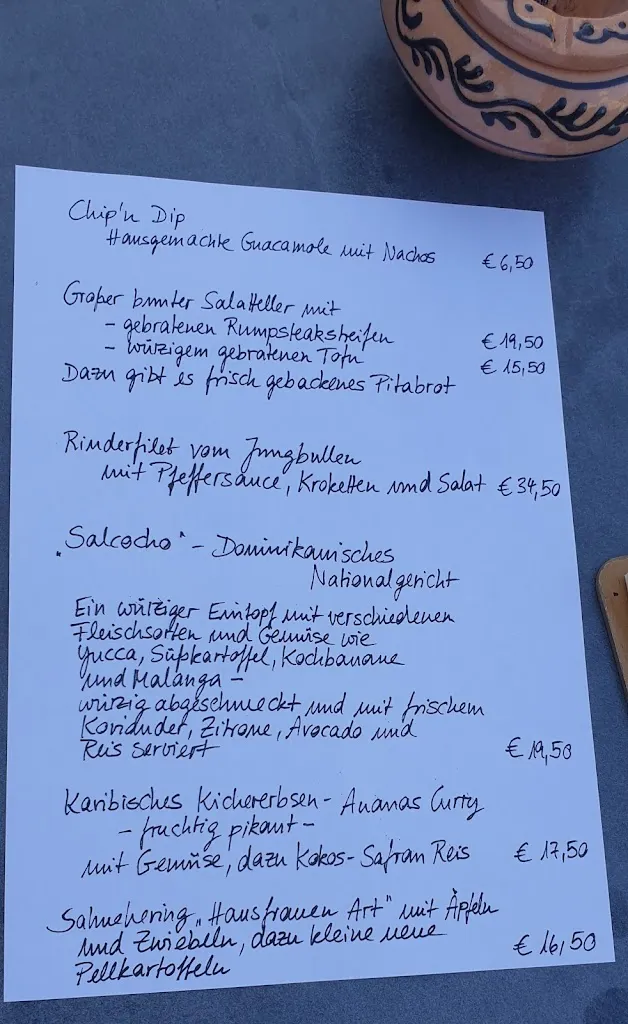 Chip'n Dip
Hausgemachte Guacamole mit Nachos € 6,50
Großer bunter Salatteller mit
- gebratenen Rumpsteakstreifen € 19,50
- würzigem gebratenen Tofu € 15,50
Dazu gibt es frisch gebackenes Pitabrot
Rinderfilet vom Jungbullen
mit Pfeffersauce, Kroketten und Salat € 34,50
"Salcocho" - Dominikanisches
Nationalgericht
Ein würziger Eintopf mit verschiedenen
Fleischsorten und Gemüse wie
Yucca, Süßkartoffel, Kochbanane
und Malanga -
würzig abgeschmeckt und mit frischem
Koriander, Zitrone, Avocado und
Reis serviert € 19,50
Karibisches Kichererbsen-Ananas Curry
- fruchtig pikant -
mit Gemüse, dazu Kokos-Safran Reis € 17,50
Sahnehering „Hausfrauen Art" mit Äpfeln
und Zwiebeln, dazu kleine neue
Pellkartoffeln € 16,50